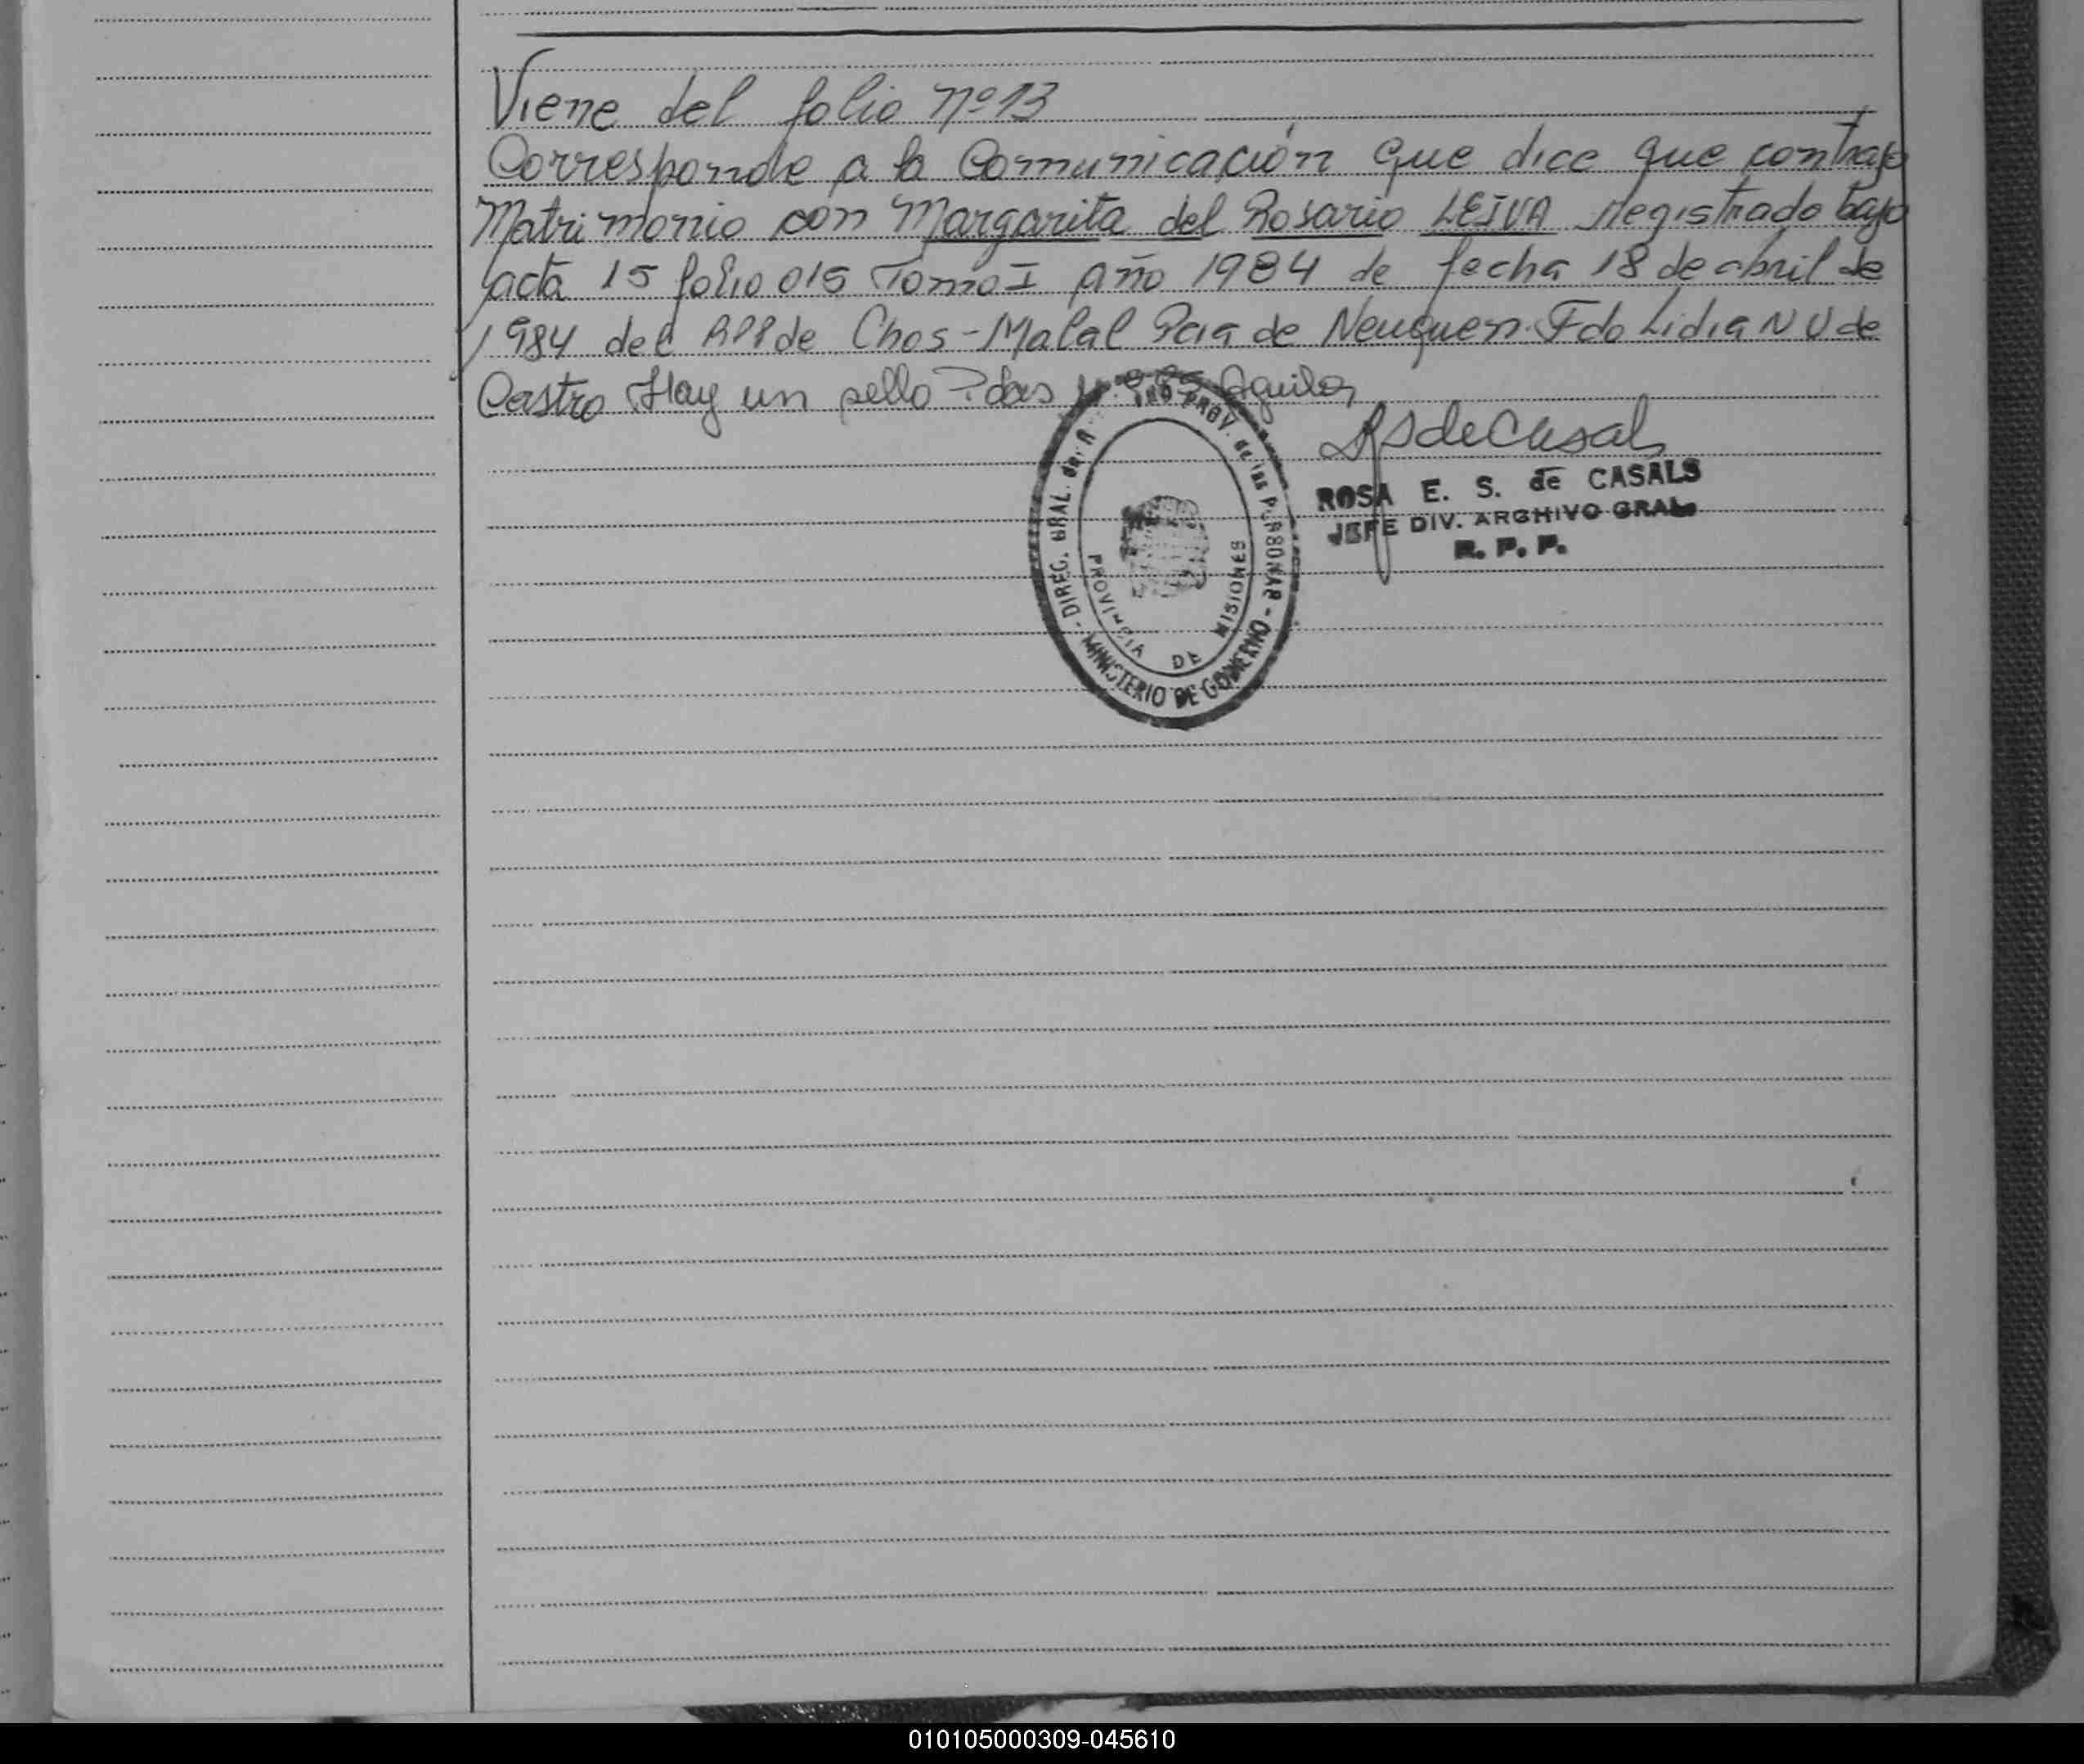 Viene del folio nº 13
Corresponde a la Comunicación que dice que contrajo
Matrimonio con Margarita del Rosario LEIVA Registrado bajo
acta 15 folio 015 Tomo I año 1984 de fecha 18 de abril de
1984 del RPP de Chos-Malal Pcia de Neuquen. Fdo Lidia N U de
Castro Hay un sello Pdas
ROSA E. S. de CASALS
JEFE DIV. ARCHIVO GRAL.
R. P. P.
DIREC. GRAL. del PROV. de las PERSONAS - MINISTERIO DE GOBIERNO -
PROVINCIA DE MISIONES
010105000309-045610